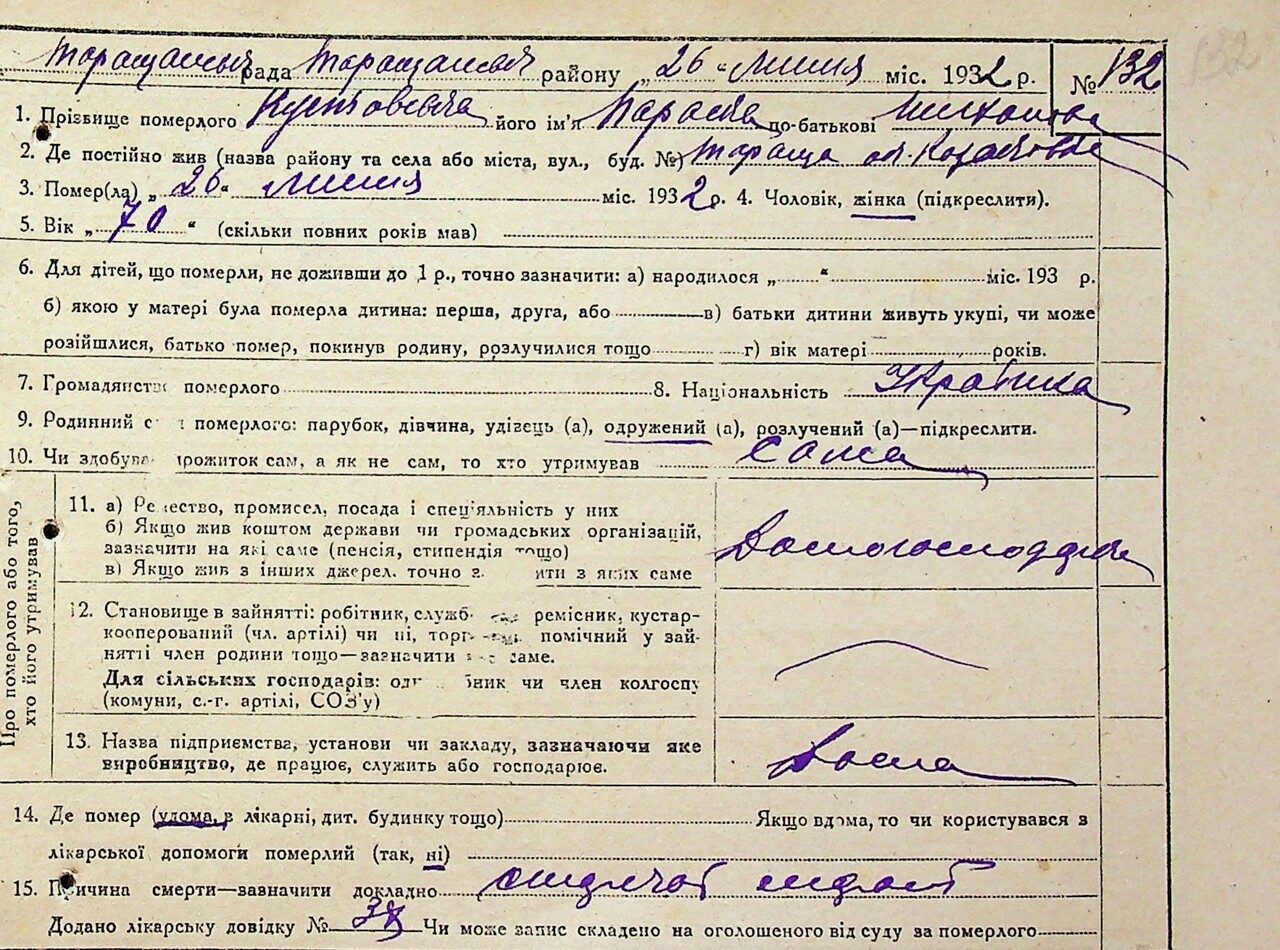 Таращанська рада Таращанського району „26“ Липня міс. 1932 р. № 132
1. Прізвище померлого його ім'я Параска по-батькові
2. Де постійно жив (назва району та села або міста, вул., буд. №) Тараща
3. Помер(ла) „26“ Липня міс. 1932 р. 4. Чоловік, жінка (підкреслити).
5. Вік „70“ (скільки повних років мав)
6. Для дітей, що померли, не доживши до 1 р., точно зазначити: а) народилося „ “ міс. 193 р.
б) якою у матері була померла дитина: перша, друга, або в) батьки дитини живуть укупі, чи може
розійшлися, батько помер, покинув родину, розлучилися тощо г) вік матері років.
7. Громадянство померлого 8. Національність Українка
9. Родинний померлого: парубок, дівчина, удівець (а), одружений (а), розлучений (а)—підкреслити.
10. Чи здобував прожиток сам, а як не сам, то хто утримував Сама
Про померлого або того,
хто його утримував
11. а) Ремество, промисел, посада і спец'яльність у них
б) Якщо жив коштом держави чи громадських організацій,
зазначити на які саме (пенсія, стипендія тощо)
в) Якщо жив з інших джерел, точно зазначити з яких саме
Домогосподарка
12. Становище в зайнятті: робітник, службовець, ремісник, кустар-
кооперований (чл. артілі) чи ні, торговець, помічний у зай-
нятті член родини тощо—зазначити саме.
Для сільських господарів: одноосібник чи член колгоспу
(комуни, с.-г. артілі, СОЗ'у)
13. Назва підприємства, установи чи закладу, зазначаючи яке
виробництво, де працює, служить або господарює.
Дома
14. Де помер (удома, в лікарні, дит. будинку тощо) Якщо вдома, то чи користувався з
лікарської допомоги померлий (так, ні)
15. Причина смерти—зазначити докладно
Додано лікарську довідку № 38 Чи може запис складено на оголошеного від суду за померлого
132